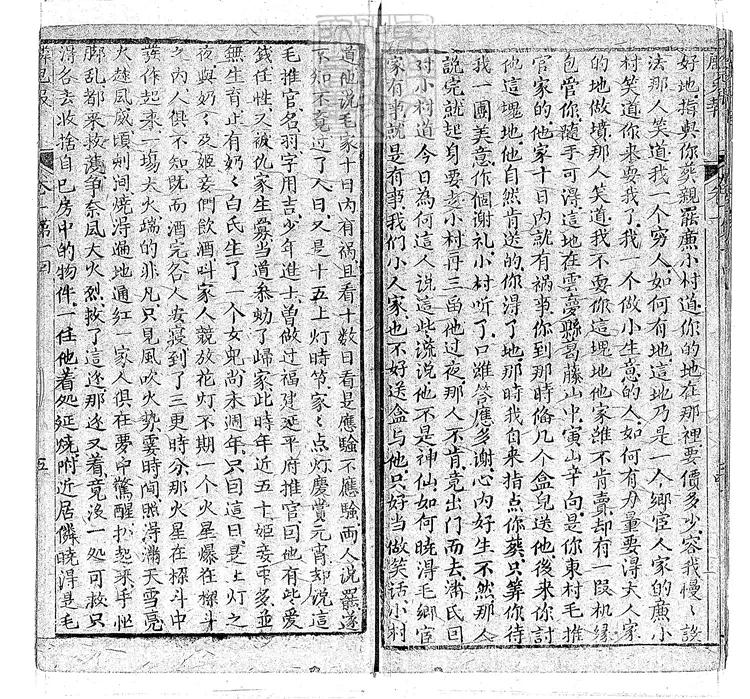 好地指與你葬親罷鹿小村道你的地在那裡要價多少容我慢〻設
法那人笑道我一个窮人如何有地這地乃是一个鄉宦人家的鹿小
村笑道你来耍我了我一個做小生意的人如何有力量要得大人家
的地做墳那人笑道我不耍你這塊地他家雖不肯賣却有一段机緣
包管你隨手可得這地在雲夢縣葛藤山中寅山辛向是你東村毛推
官家的他家十日內就有禍事你到那時俻几个盒兒送他後来你討
他這塊地他自然肯送的你得了地那時我自来指点你葬只算你待
我一團美意作個謝礼小村听了口雖答應多謝心內好生不然那人
說完就起身要去小村再三畱他过夜那人不肯竟出門而去潘氏曰
对小村道今日為何這人說這些謊說他不是神仙如何曉得毛鄉宦
家有事就是有事我們小人家也不好送盒与他只好当做笑话小村
道他說毛家十日內有祸且看十数日看是應驗不應驗两人說罷遂
不知不覺过了人日又是十五上灯時节家〻点灯慶賞元宵却說這
毛推官名羽字用吉少年進士曾做过福建延平府推官曰他有些爱
錢任性又被仇家生釁当道叅劾了歸家此時年近五十姬妾甚多並
無生育止有奶〻白氏生了一个女兒尚未週年只曰這日是上灯之
夜與奶〻及姬妾們飲酒叫家人競放花灯不期一个火星爆在樑斗
之內人俱不知既而酒完各人安寝到了三更時分那火星在樑斗中
發作起来一塲大火端的非凡只見風吹火勢霎時間照得滿天雪亮
火趂風威頃刻间燒得遍地通红一家人俱在夢中驚醒扒起来手忙
脚乱都来救濟争奈風大火烈救了這邊那邊又着竟沒一処可救只
得各去收捨自己房中的物件一任他着処延燒附近居隣曉得是毛
卷一 第一回
五